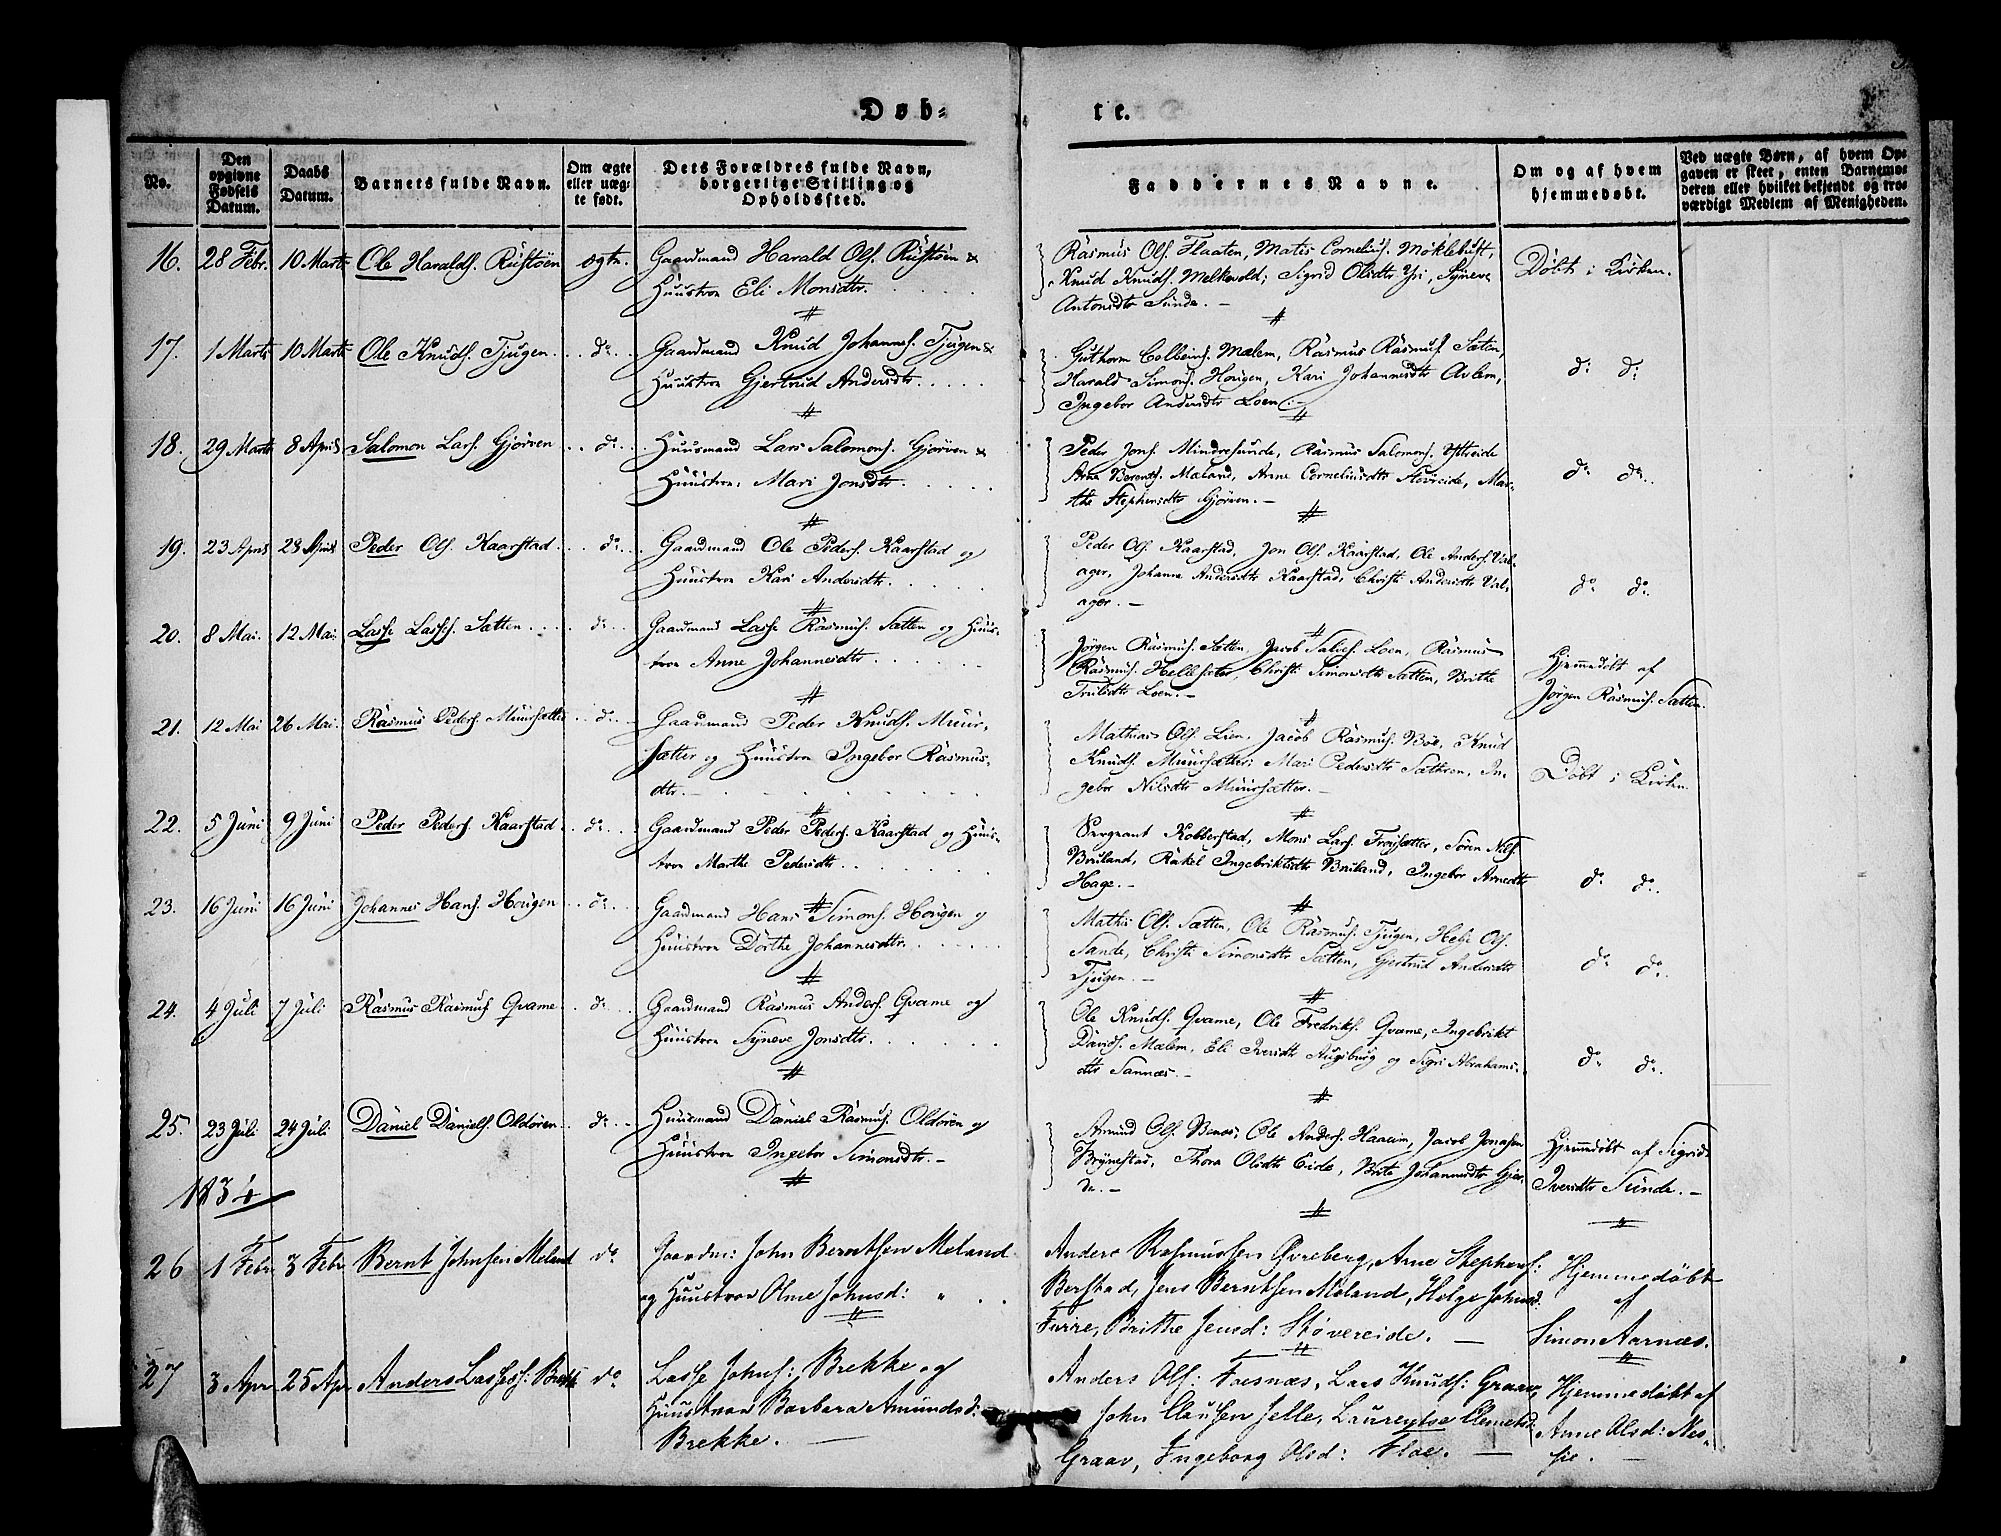 Døb-
te.
No.
Den opgivne Fødsels Datum.
Daabs Datum.
Barnets fulde Navn.
Om ægte eller uægte født.
Dets Forældres fulde Navn, borgerlige Stilling og Opholdssted.
Faddernes Navne.
Om og af hvem hjemmedøbt.
Ved uægte Børn, af hvem Opgaven er skeet, enten Barnemoderen eller hvilket bekjendt og troværdigt Medlem af Menigheden.
16. 28 Febr. 10 Marts Ole Haralds. Rustøen ægte. Gaardmand Harald Ols. Rustøen &
Huustroe Eli Monsdtr.
Rasmus Ols. Flaaten, Matis Cornelius. Möklebust,
Knud Knuds. Melkevold, Sigrid Olsdtr Yri, Syneve
Antonsdtr Sunde.
Døbt i Kirken.
17. 1 Marts 10 Marts Ole Knuds. Tjugen do. Gaardmand Knud Johannes. Tjugen &
Huustroe Gjertrud Andersdtr.
Guthorm Colbeins. Mælem, Rasmus Rasmus. Sætten,
Harald Simons. Hougen, Kari Johannesdtr Avlem,
Ingebor Andersdtr Loen.
do. do.
18. 29 Marts 8 April Salomon Lars. Gjørven do. Huusmand Lars Salomons. Gjørven &
Huustroe Mari Jonsdtr.
Peder Jons. Mindresunde, Rasmus Salomons.
Arne Berents. Mæland, Anne Corneliusdtr Stevreide, Mar-
the Stephensdtr Gjørven.
do. do.
19. 23 April 28 April Peder Ols. Kaarstad do. Gaardmand Ole Peders. Kaarstad og
Huustroe Kari Andersdtr.
Peder Ols. Kaarstad, Jon Ols. Kaarstad, Ole Anders. Val-
ager, Johanne Andersdtr Kaarstad, Christi Andersdtr Val-
ager.
do. do.
20. 8 Mai. 12 Mai. Lasse Lasses. Sætten do. Gaardmand Lasse Rasmus. Sætten og Huus-
troe Anne Johannesdtr.
Jørgen Rasmus. Sætten, Jacob Loen, Rasmus
Rasmus. Hellesæter, Christi Simonsdtr Sætten, Brithe
Trulsdtr Loen.
Hjemmedöbt af
Jørgen Rasmus. Sætten.
21. 12 Mai 26 Mai. Rasmus Peders. Muursætter do. Gaardmand Peder Knuds. Muur-
sætter og Huustroe Ingebor Rasmus-
dtr.
Mathias Ols. Lien, Jacob Rasmus. Böe, Knud
Knuds. Muursætter, Mari Pedersdtr Sæthren, In-
gebor Nilsdtr Muursætter.
Döbt i Kirken.
22. 5 Juni 9 Juni Peder Peders. Kaarstad do. Gaardmand Peder Peders. Kaarstad og Huus-
troe Marthe Pedersdtr.
Sergeant Kobberstad, Mons Lars. Froisætter, Søren Nils.
Bruland, Rakel Ingebriktsdtr Bruland, Ingebor Arnedtr
Hage.
do. do.
23. 16 Juni 16 Juni Johannes Hans. Hougen do. Gaardmand Hans Simons. Hougen og
Huustroe Dorthe Johannesdtr.
Mathis Ols. Sætten, Ole Rasmus. Tjugen, Helje Ols.
Sande, Christi Simonsdtr Sætten, Gjertrud Andersdtr
Tjugen.
do. do.
24. 4 Juli 7 Juli Rasmus Rasmus. Qvame do. Gaardmand Rasmus Anders. Qvame og
Huustroe Syneve Jonsdtr.
Ole Knuds. Qvame, Ole Fredriks. Qvame, Ingebrikt
Davids. Mælem, Eli Iversdtr Augsburg og Sigri Abrahams-
dtr Sannæs.
do. do.
25. 23 Juli 24 Juli Daniel Daniels. Oldören do. Huusmand Daniel Rasmus. Oldören og
Huustroe Ingebor Simonsdtr.
Amund Ols. Benos, Ole Anders. Haaeim, Jacob Jonasen
Brynestad, Thora Olsdtr Eide, Brite Johannesdtr Gjer-
de.
Hjemmedöbt af Sigrid
Iversdtr Sunde.
1834
26 1 Febr. 3 Febr. Bernt Johnsen Meland do Gaardm: John Berntsen Meland
og Huustroe Ane Johnsd:
Anders Rasmussen Øvreberg, Arne Stephens:
Berstad, Jens Berntsen Meland, Helge Johnsd.
Furre, Brithe Jensd: Støvereide.
Hjemmedöbt
af
Simon Aarnæs.
27 3 Apr 25 Apr Anders Lasses: Brekke do Lasse Johns: Brekke og
Huustroe Barbara Amundsd:
Brekke.
Anders Ols: Foesnæs, Lars Knuds: Graav,
John Clausen Jelle, Laurentse Clemetsd:
Graav, Ingeborg Olsd: Floe.
Hjemmedöbt af
Anne Olsd: Nes-